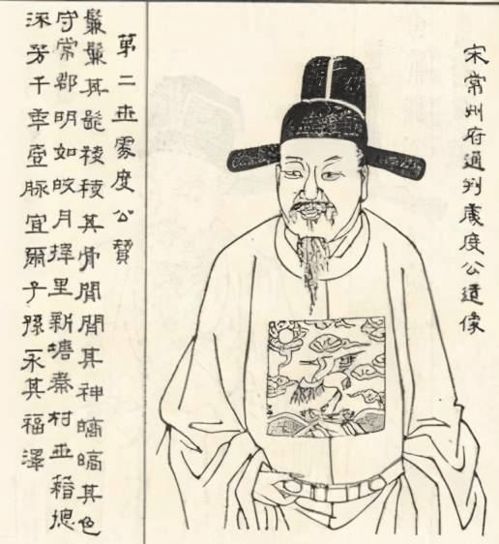 宋常州府通判處度公遺像
第二世處度公贊
鬑鬑其髭稜稜其骨閒閒其神皜皜其色
守常郡明如皎月擇里新塘秦村世籍摠
流芳千季脉宜爾子孫永其福澤